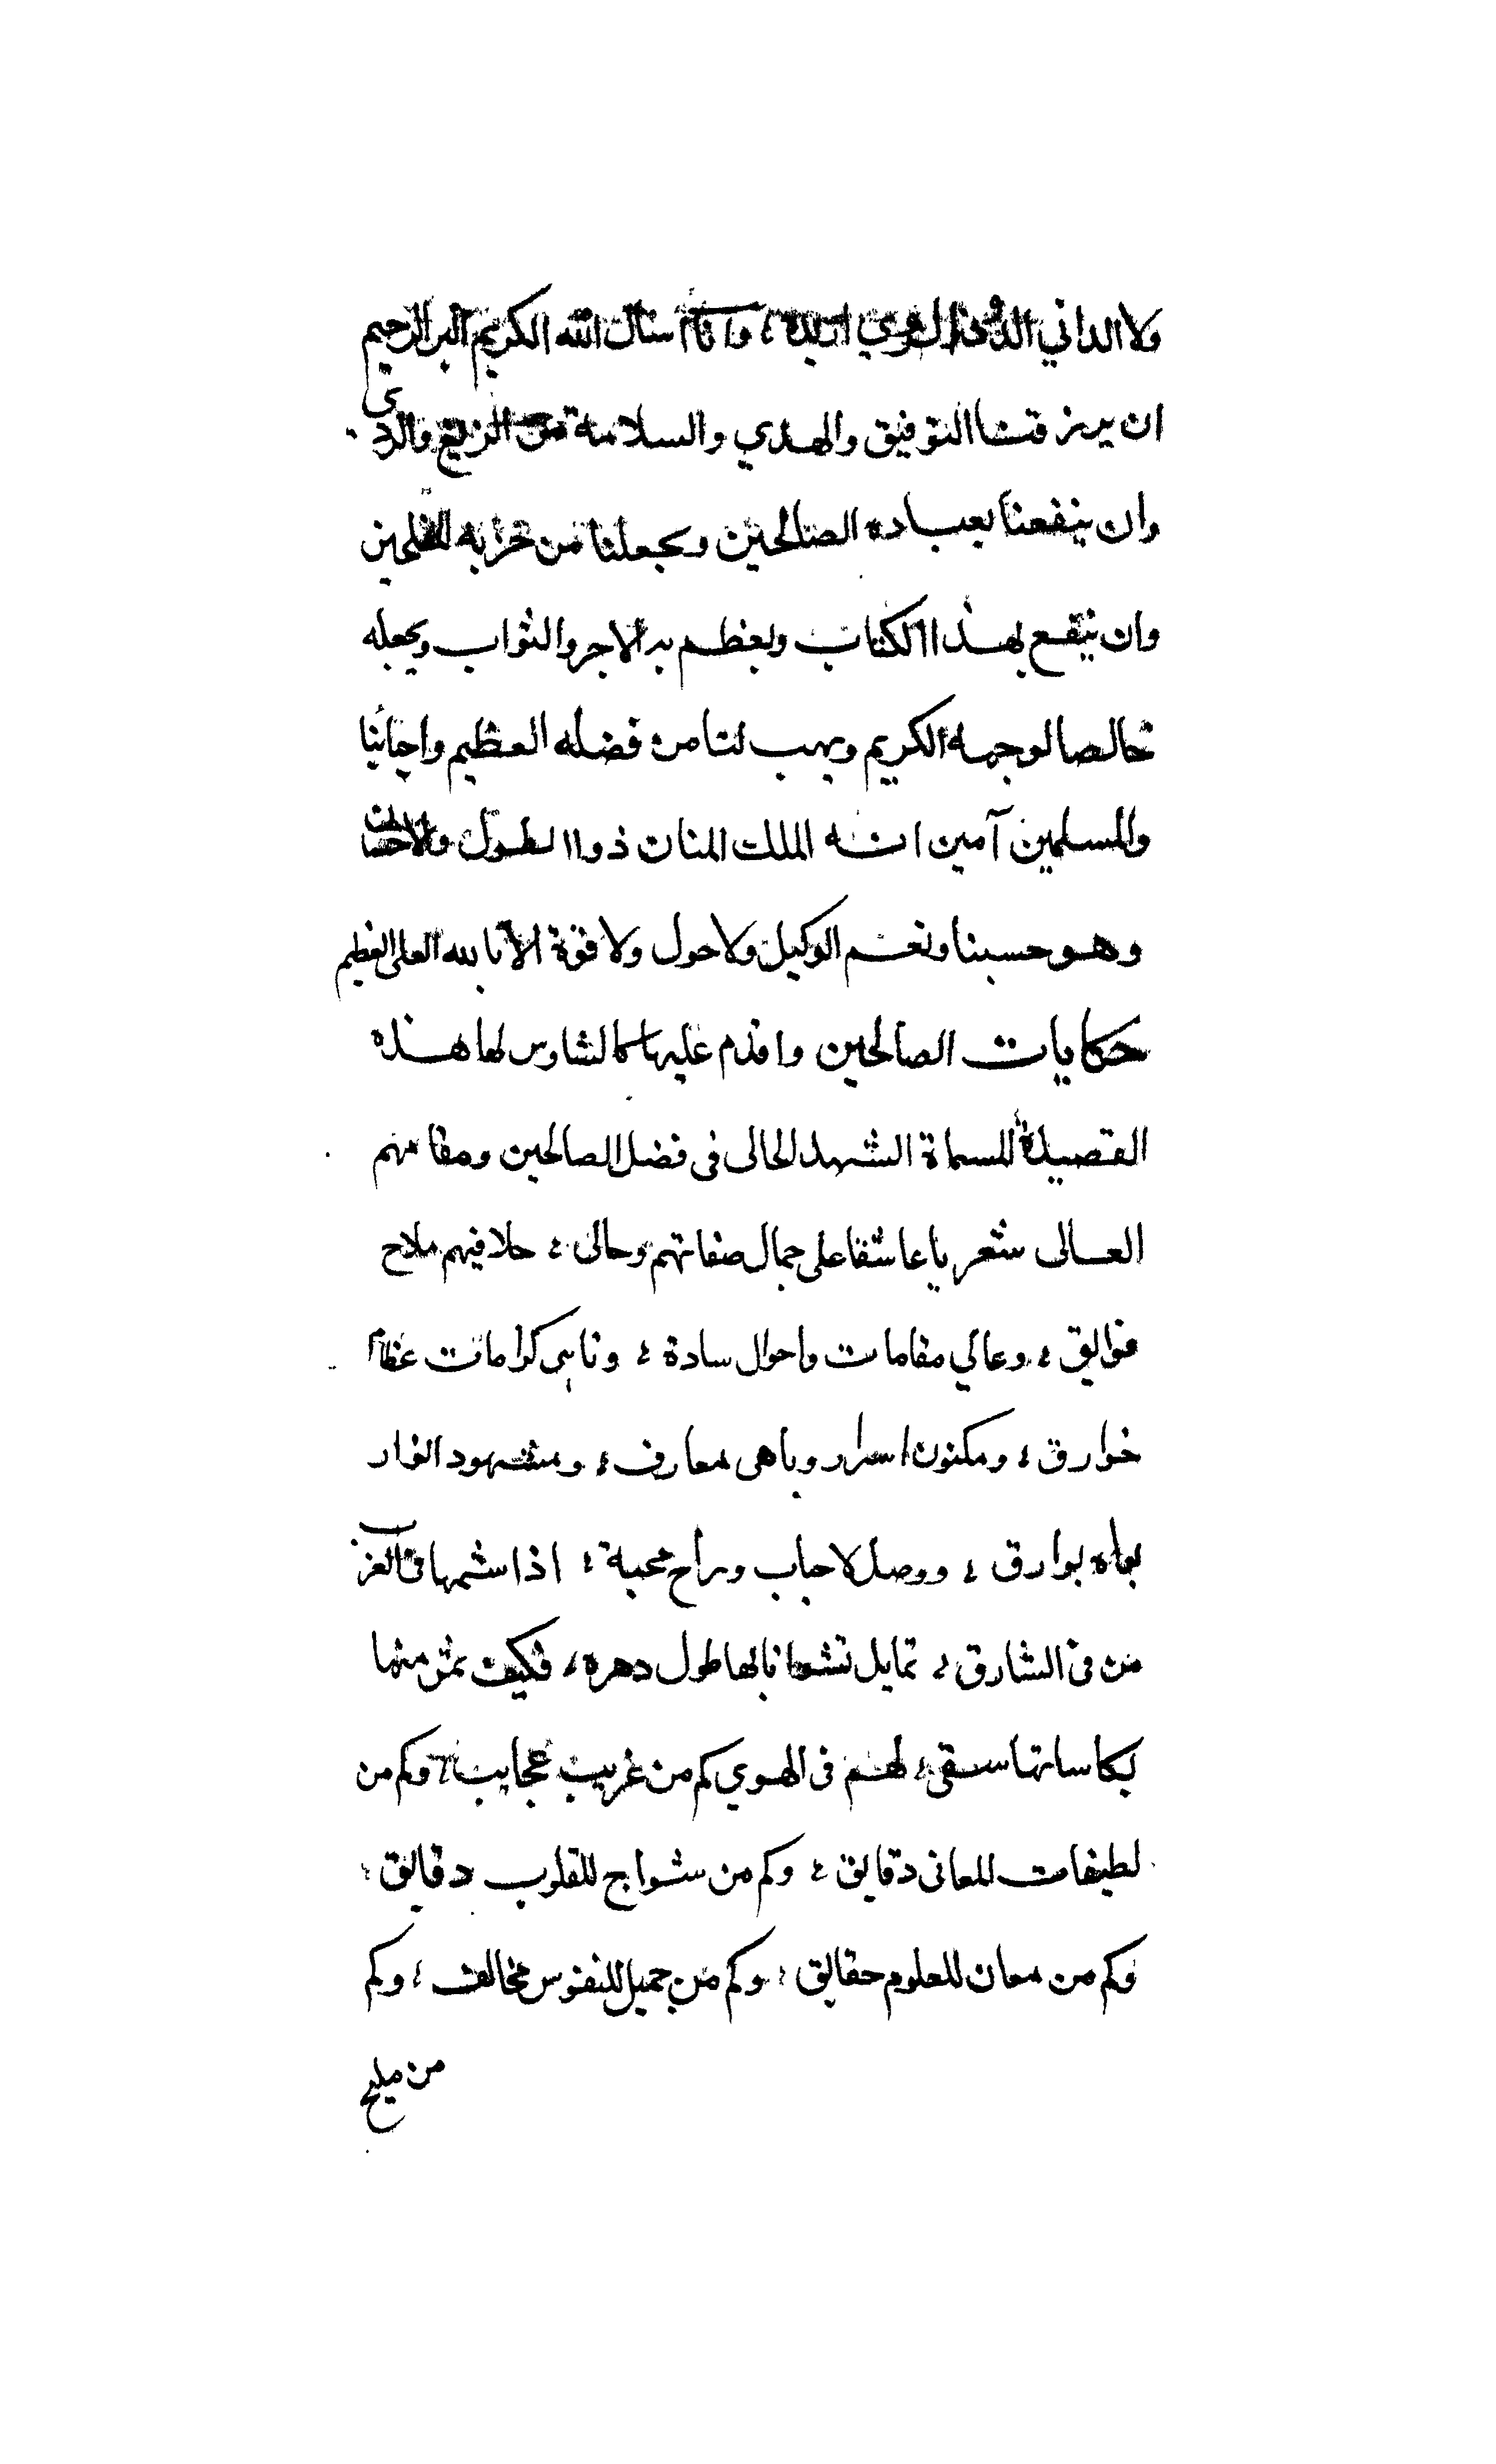 ولا الداني الذي نزل شوي اريده ؛ وانا اسئال الله الكريم البر الرحيم
ان يرزقنا التوفيق والهدي والسلامة من الزيغ والردى
وان ينفعنا بعباده الصالحين ويجعلنا من حزابه المفلحين
وان ينفع بهذا الكتاب ويعظم به الاجر والثواب ويجعله
خالصا لوجهه الكريم ويهب لنا من فضله العظيم واحبابنا
والمسلمين آمين انه الملك المنان ذو االطول والاحسان
وهو حسبنا ونعم الوكيل ولا حول ولا قوة الا بالله العلى العظيم
حكايات الصالحين واقدم عليها كالشاوس لها هذه
القصيدة المسماة الشهد الحالى فى فضل الصالحين ومقامهم
العالى شعر يا عاشقا على جمال صفاتهم وحالى ؛ حلا فيهم ملاح
فوالق ؛ وعالي مقامات واحوال سادة ؛ وناهى كرامات عظام
خوارق ؛ ومكنون اسرار وباهى معارف ؛ ومشهود انوار
بهاه بوارق ؛ ووصل لاحباب وراح محبة ؛ اذا شمها فى الغرب
من فى الشارق ؛ تمايل نشوانا بالها طول دهره ؛ فكيف بمن منها
بكاساتها سقى ؛ لهم فى الهوي كم من غريب عجايب ؛ وكم من
لطيفات المعانى دقايق ؛ وكم من شواج للقلوب دقايق ؛
وكم من معان للعلوم حقايق ؛ وكم من جميل للنفوس مخالف ؛ وكم
من مليح